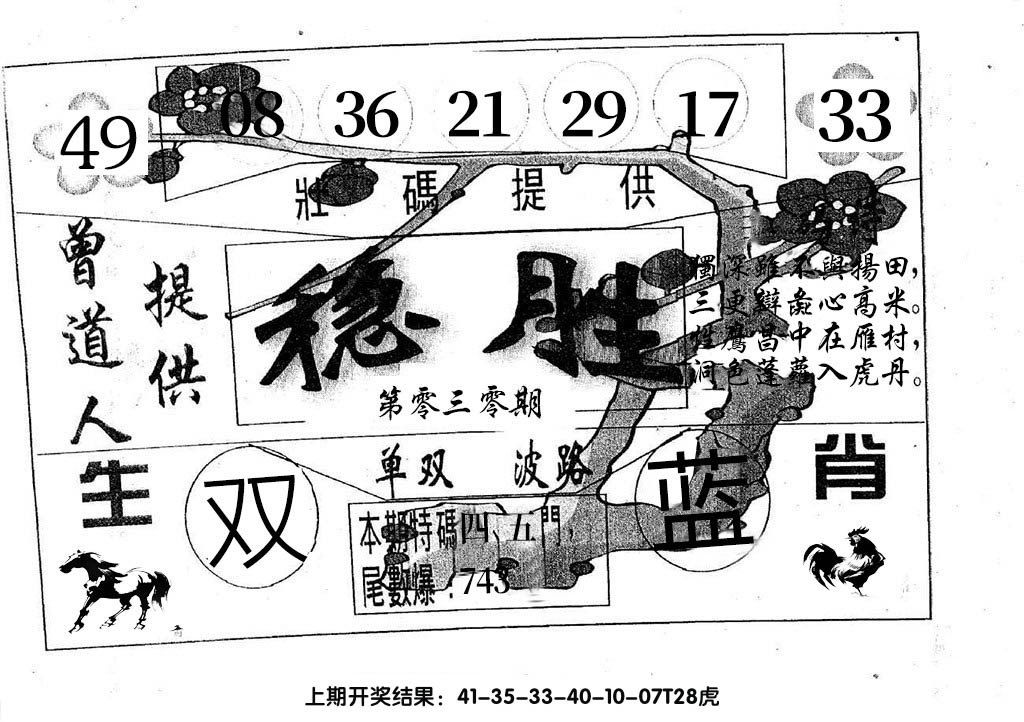 49 08 36 21 29 17 33
壯碼提供
特
曾道人
提供
稳胜
第零三零期
獨深雖不與揚田，
三更辯彘心高米。
怪鷹昌中在雁村，
洞色蓬蘿入虎丹。
单双 波路
生肖
双
蓝
本期特碼四、五門，
尾數爆：743
上期开奖结果：41-35-33-40-10-07T28虎